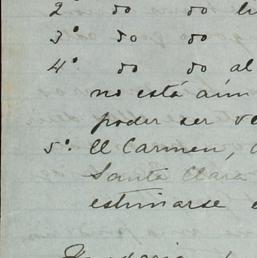 2º do do
3º do do
4º do do al
no está aún
poder ser ve
5º El Carmen,
Santa Clara
estimarse